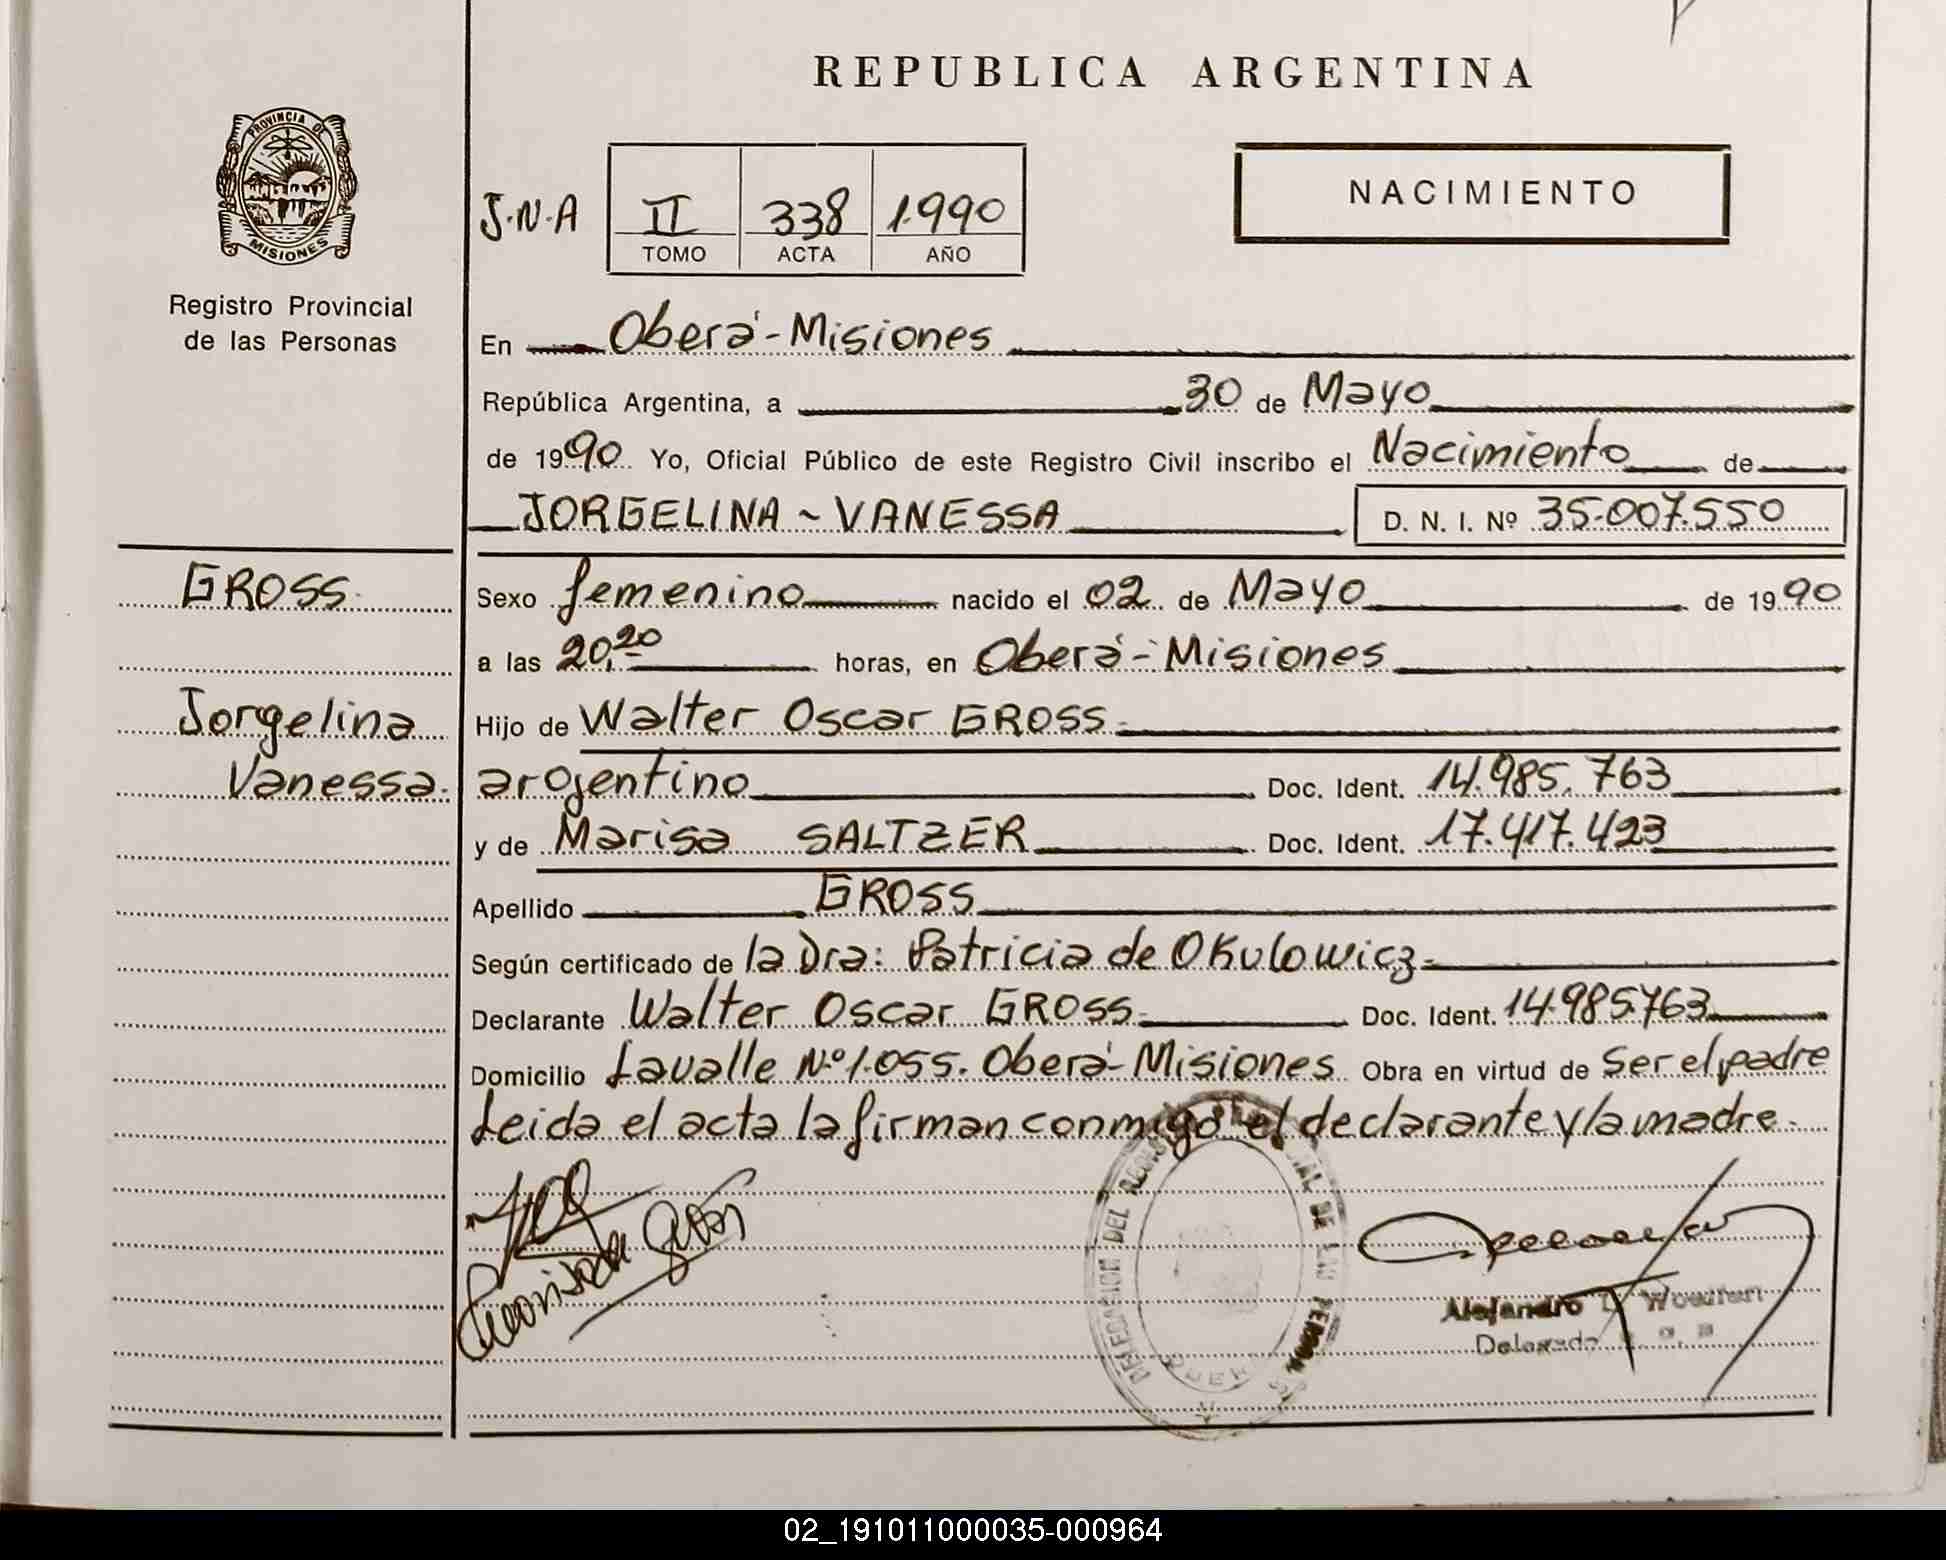 REPUBLICA ARGENTINA
PROVINCIA DE
MISIONES
Registro Provincial
de las Personas
J.N.A II 338 1.990
TOMO ACTA AÑO
NACIMIENTO
En Oberá-Misiones
República Argentina, a 30 de Mayo
de 1990 Yo, Oficial Público de este Registro Civil inscribo el Nacimiento de
JORGELINA ~ VANESSA D. N. I. Nº 35.007.550
GROSS.
Jorgelina
Vanessa.
Sexo femenino nacido el 02 de Mayo de 1990
a las 20,20 horas, en Oberá-Misiones
Hijo de Walter Oscar GROSS.
argentino Doc. Ident. 14.985.763
y de Marisa SALTZER Doc. Ident. 17.417.423
Apellido GROSS
Según certificado de la Dra: Patricia de Okulowicz
Declarante Walter Oscar GROSS. Doc. Ident. 14.985.763
Domicilio Lavalle Nº 1.055. Oberá-Misiones Obra en virtud de Ser el padre
Leida el acta la firman conmigo el declarante y la madre.
DELEGACION DEL
DE LAS
Alejandro
Delegado
02_191011000035-000964